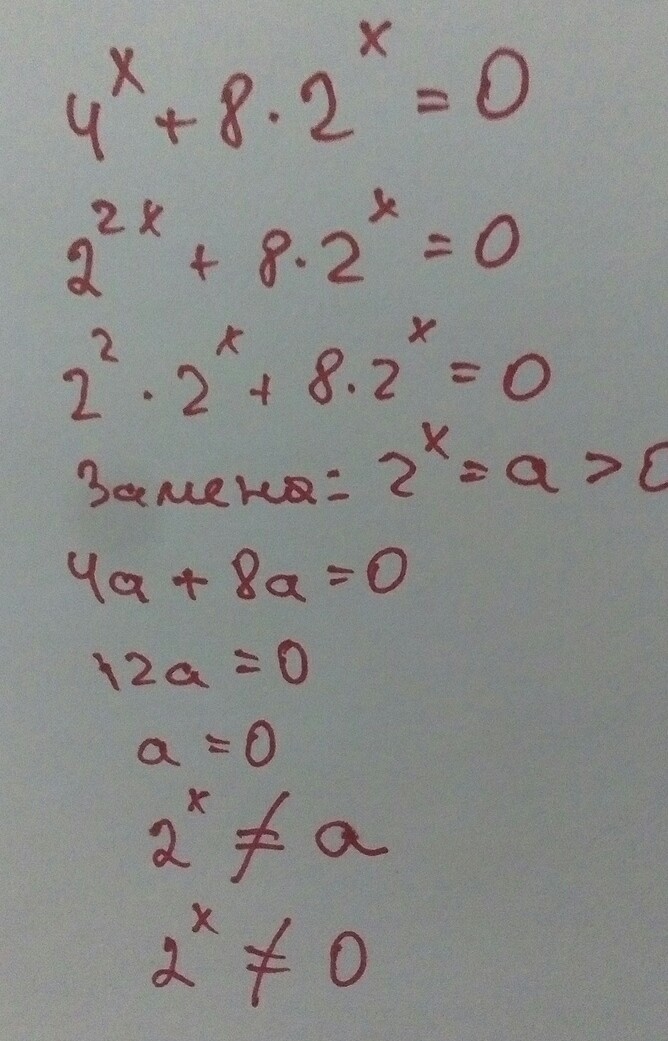 4^x + 8 · 2^x = 0
2^{2x} + 8 · 2^x = 0
2^2 · 2^x + 8 · 2^x = 0
Замена: 2^x = a > 0
4a + 8a = 0
12a = 0
a = 0
2^x ≠ a
2^x ≠ 0